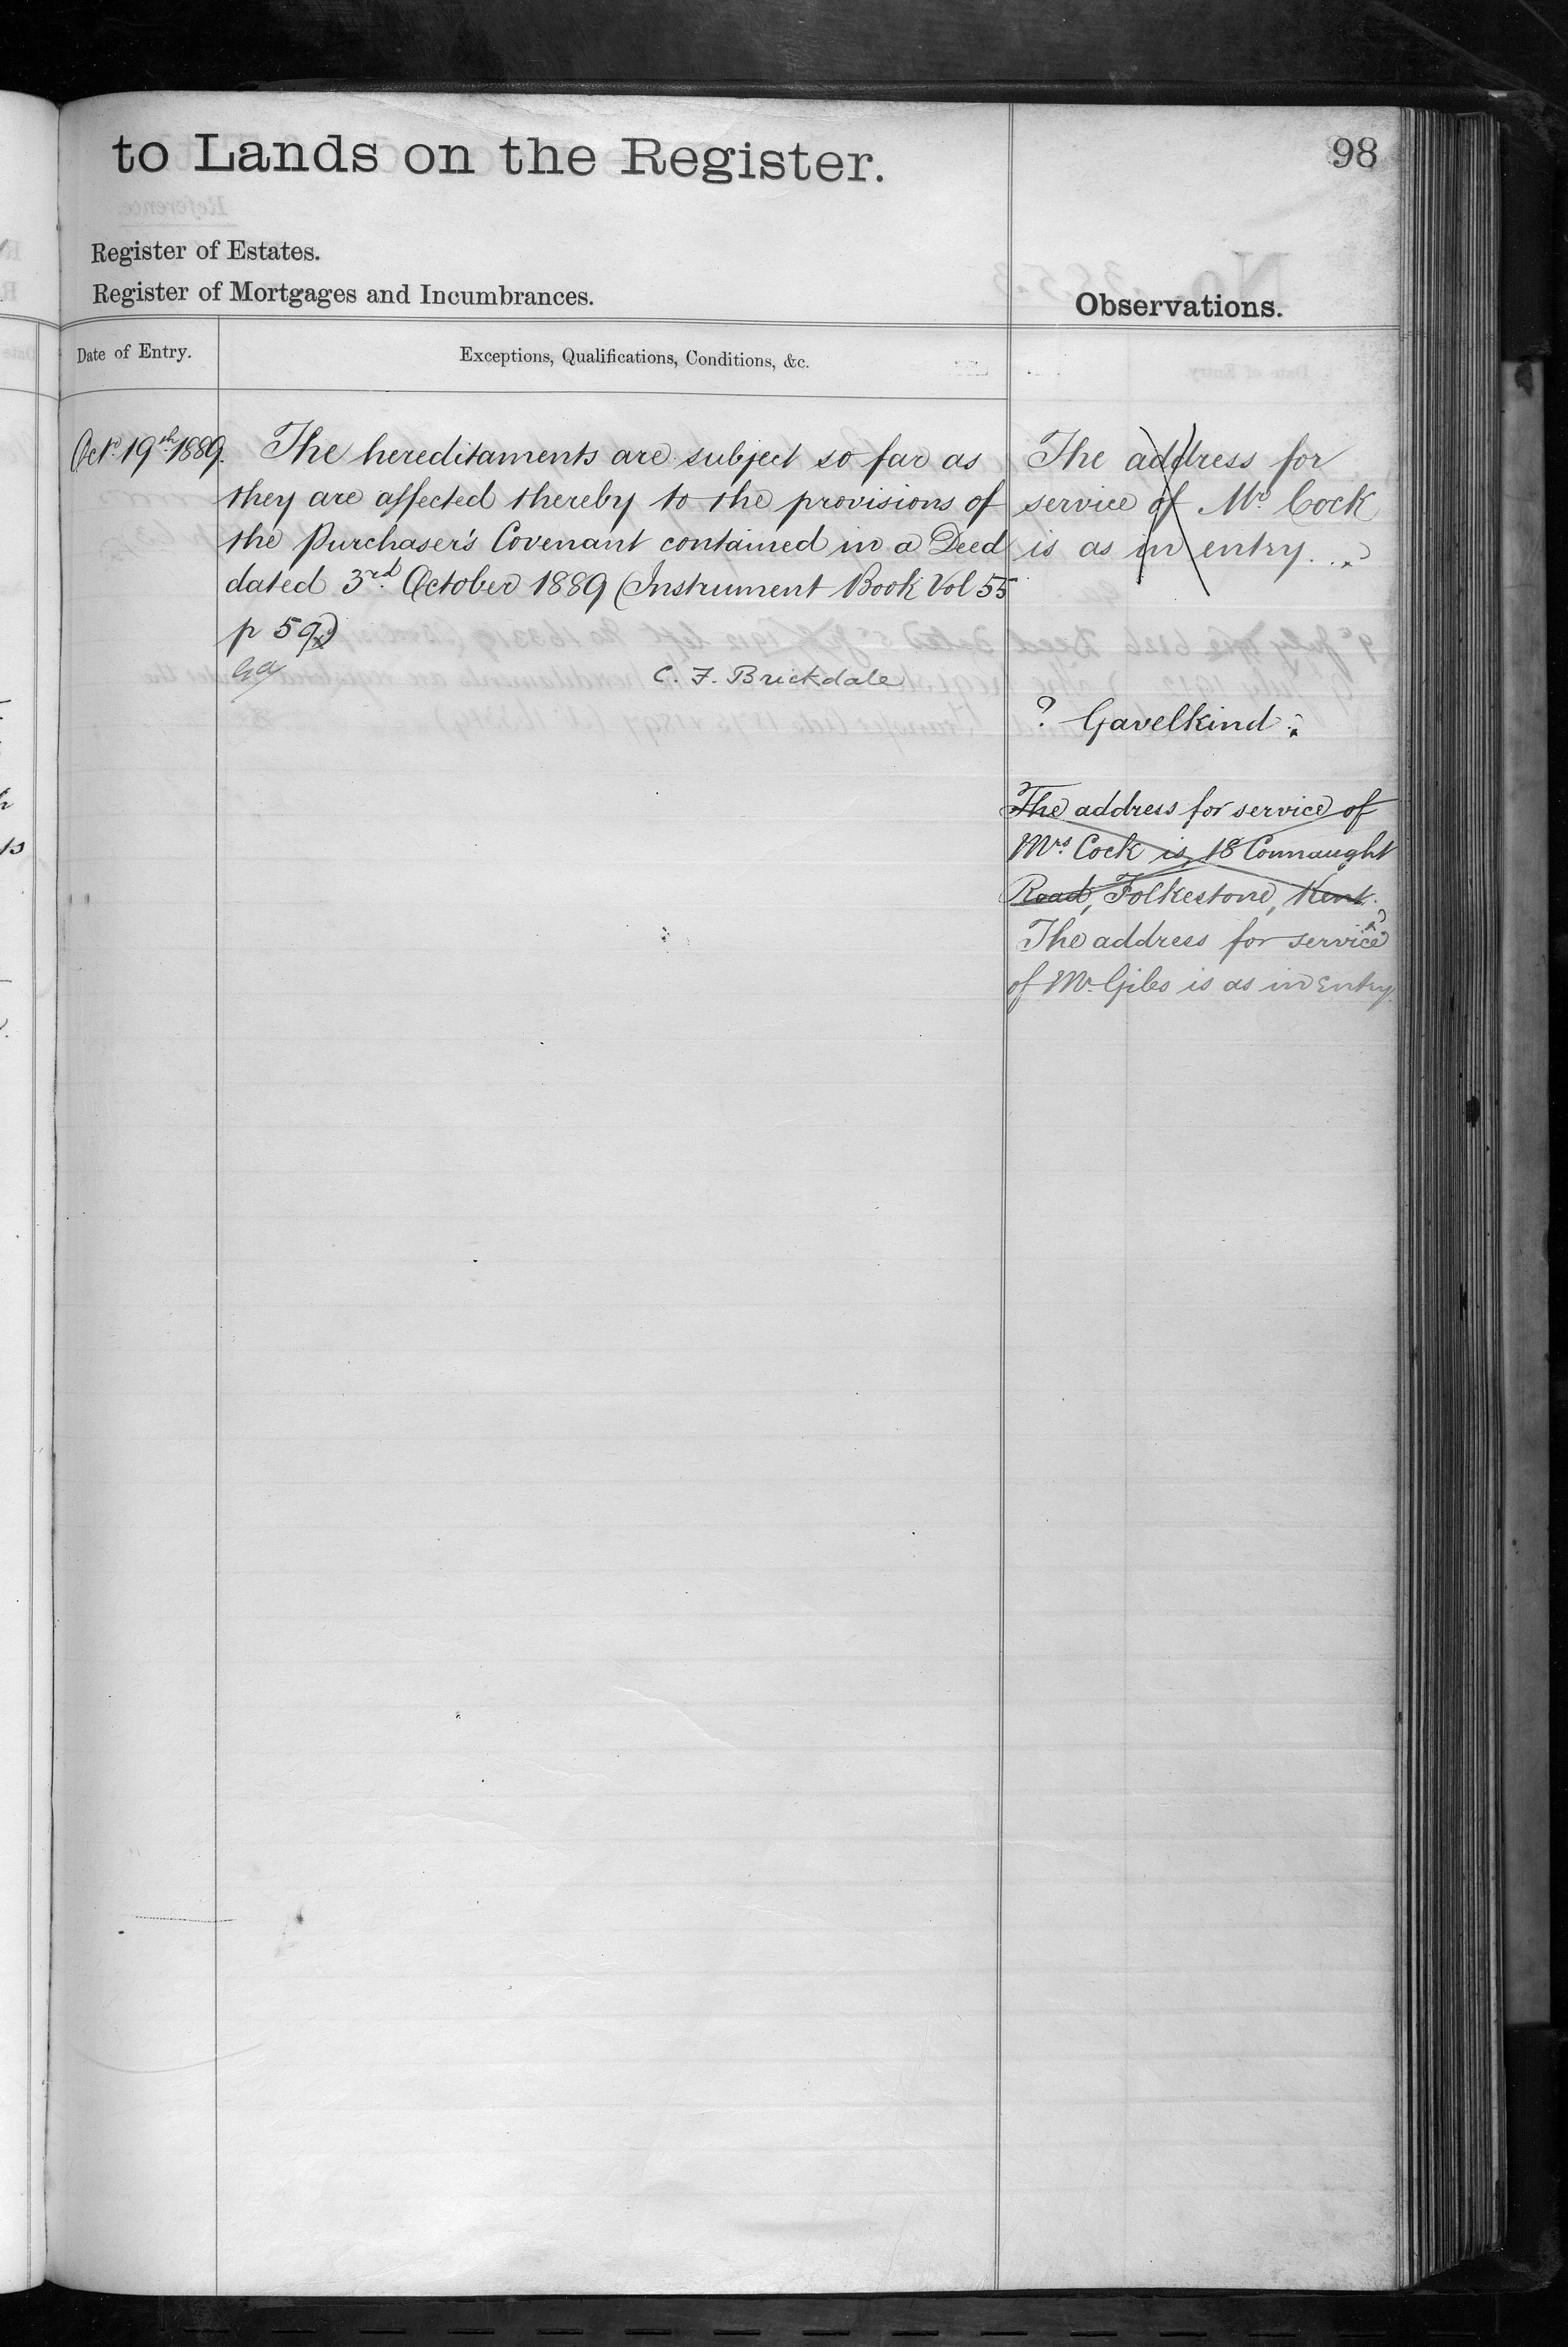 to Lands on the Register.
98
Register of Estates.
Register of Mortgages and Incumbrances.
Observations.
Date of Entry.
Exceptions, Qualifications, Conditions, &c.
Octr 19th 1889.
The hereditaments are subject so far as
they are affected thereby to the provisions of
the Purchaser's Covenant contained in a Deed
dated 3rd October 1889 (Instrument Book Vol 55
p 59)
C. F. Brickdale
The address for
service of Mr Cock
is as in entry.
? Gavelkind
The address for service of
Mrs Cock is, 18 Connaught
Road, Folkestone, Kent.
The address for service
of Mr Giles is as in Entry.